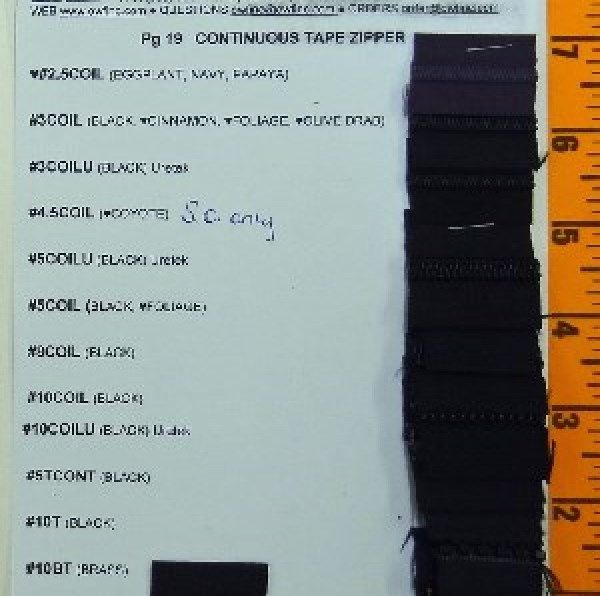 WEB www.owfinc.com • QUESTIONS owfinc@owfinc.com • ORDERS order@owfinc.com
Pg 19 CONTINUOUS TAPE ZIPPER
♥#2.5COIL (EGGPLANT, NAVY, PAPAYA)
#3COIL (BLACK, ♥CINNAMON, ♥FOLIAGE, ♥OLIVE DRAB)
#3COILU (BLACK) Uretek
#4.5COIL (♥COYOTE)
#5COILU (BLACK) Uretek
#5COIL (BLACK, ♥FOLIAGE)
#9COIL (BLACK)
#10COIL (BLACK)
#10COILU (BLACK) Uretek
#5TCONT (BLACK)
#10T (BLACK)
#10BT (BRASS)
7
6
5
4
3
2